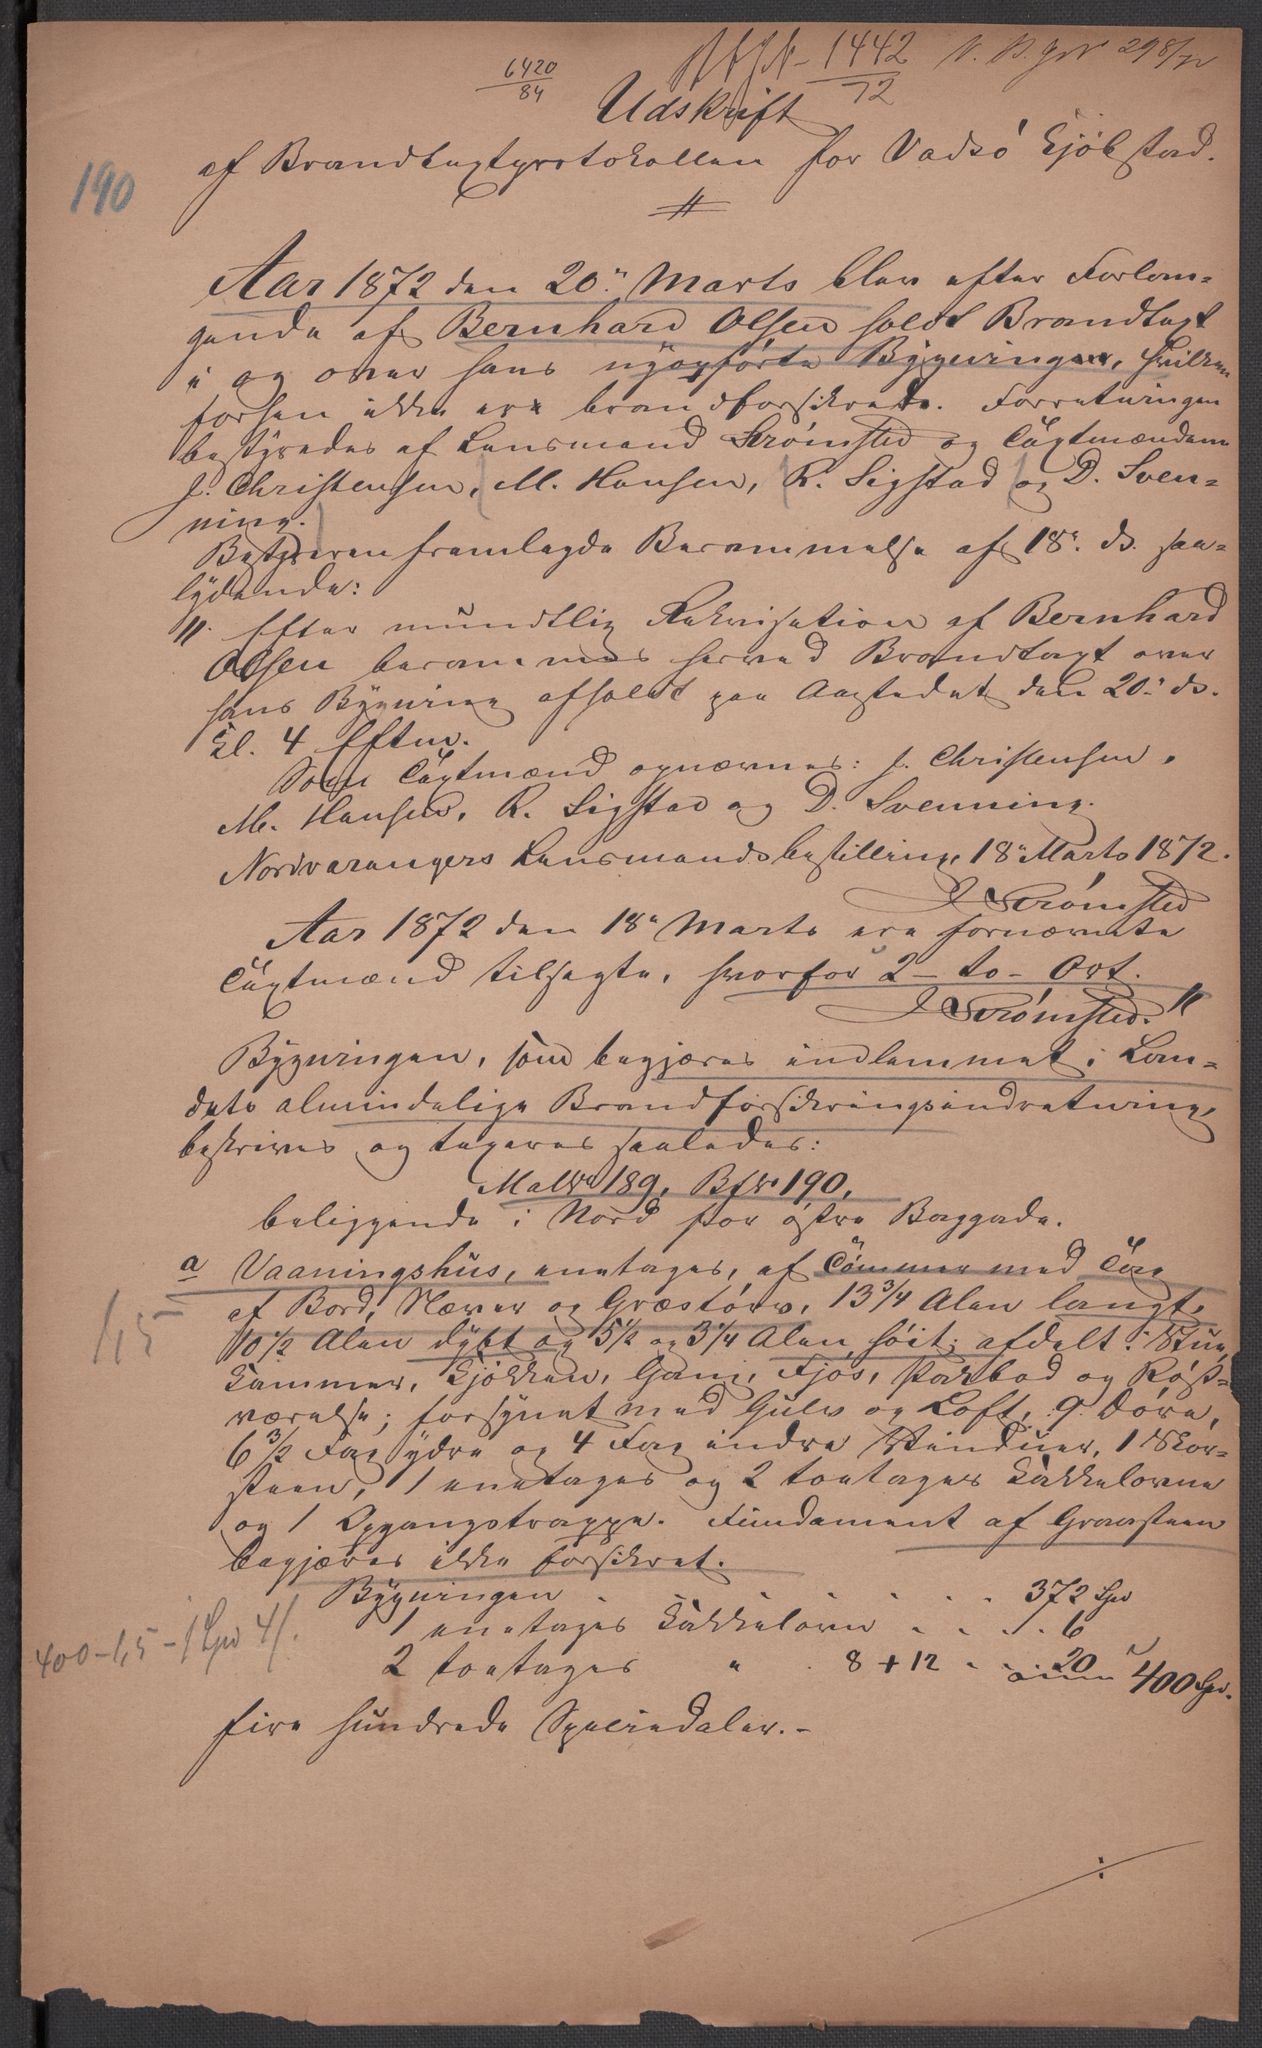 6420/84
1442/72
298/72
Udskrift
af Brandtaxtprotokollen for Vadsö Kjöbstad.
190
Aar 1872 den 20de Marts blev efter Forlan-
gende af Bernhard Olsen holdt Brandtaxt
i og over hans nyopförte Bygninger, hvilken
forhen ikke ere brandforsikrede. Forretningen
bestyredes af Lensmand Strömsted og Taxtmændene
J. Christensen, M. Hansen, R. Sigstad og D. Sven-
ning.
Bestyreren fremlagde Berammelse af 18de ds. saa-
lydende:
"Efter mundtlig Rekvisition af Bernhard
Olsen berammes herved Brandtaxt over
hans Bygning afholdt paa Aastedet den 20de ds.
Kl. 4 Efterm.
Som Taxtmænd opnævnes: J. Christensen,
M. Hansen, R. Sigstad og D. Svenning.
Nordvarangers Lensmandsbestilling, 18de Marts 1872.
J Strömsted
Aar 1872 den 18de Marts ere fornævnte
Taxtmænd tilsagte, hvorfor 2 - to - Ort.
J Strömsted."
Bygningen, som begjæres indlemmet i Lan-
dets almindelige Brandforsikringsindretning,
beskrives og taxeres saaledes:
Mat№ 189, Bf№ 190,
beliggende i Nord for östre Baggade.
a Vaaningshus, eenetages, af Tömmer med Tag
af Bord, Næver og Græstörv, 13 3/4 Alen langt,
1,5
10 1/2 Alen dybt og 5 1/2 og 3 1/4 Alen höit; afdelt i Stue,
Kammer, Kjökken, Gang, Fjös, Madbod og Røst-
værelse; forsynet med Gulv og Loft, 9 Döre,
6 3/2 Fag ydre og 4 Fag indre Vinduer, 1 Skor-
steen, 1 eenetages og 2 toetages Kakkelovne
og 1 Opgangstrappe. Fundament af Graasteen
begjæres ikke forsikret.
Bygningen . . . . 372 Spd
1 eenetages Kakkelovn . . . . 6
400 - 1,5 - 1 Spd 4/.
2 toetages " . 8 + 12 . . . 20 400 Spd.
fire hundrede Speciedaler.-